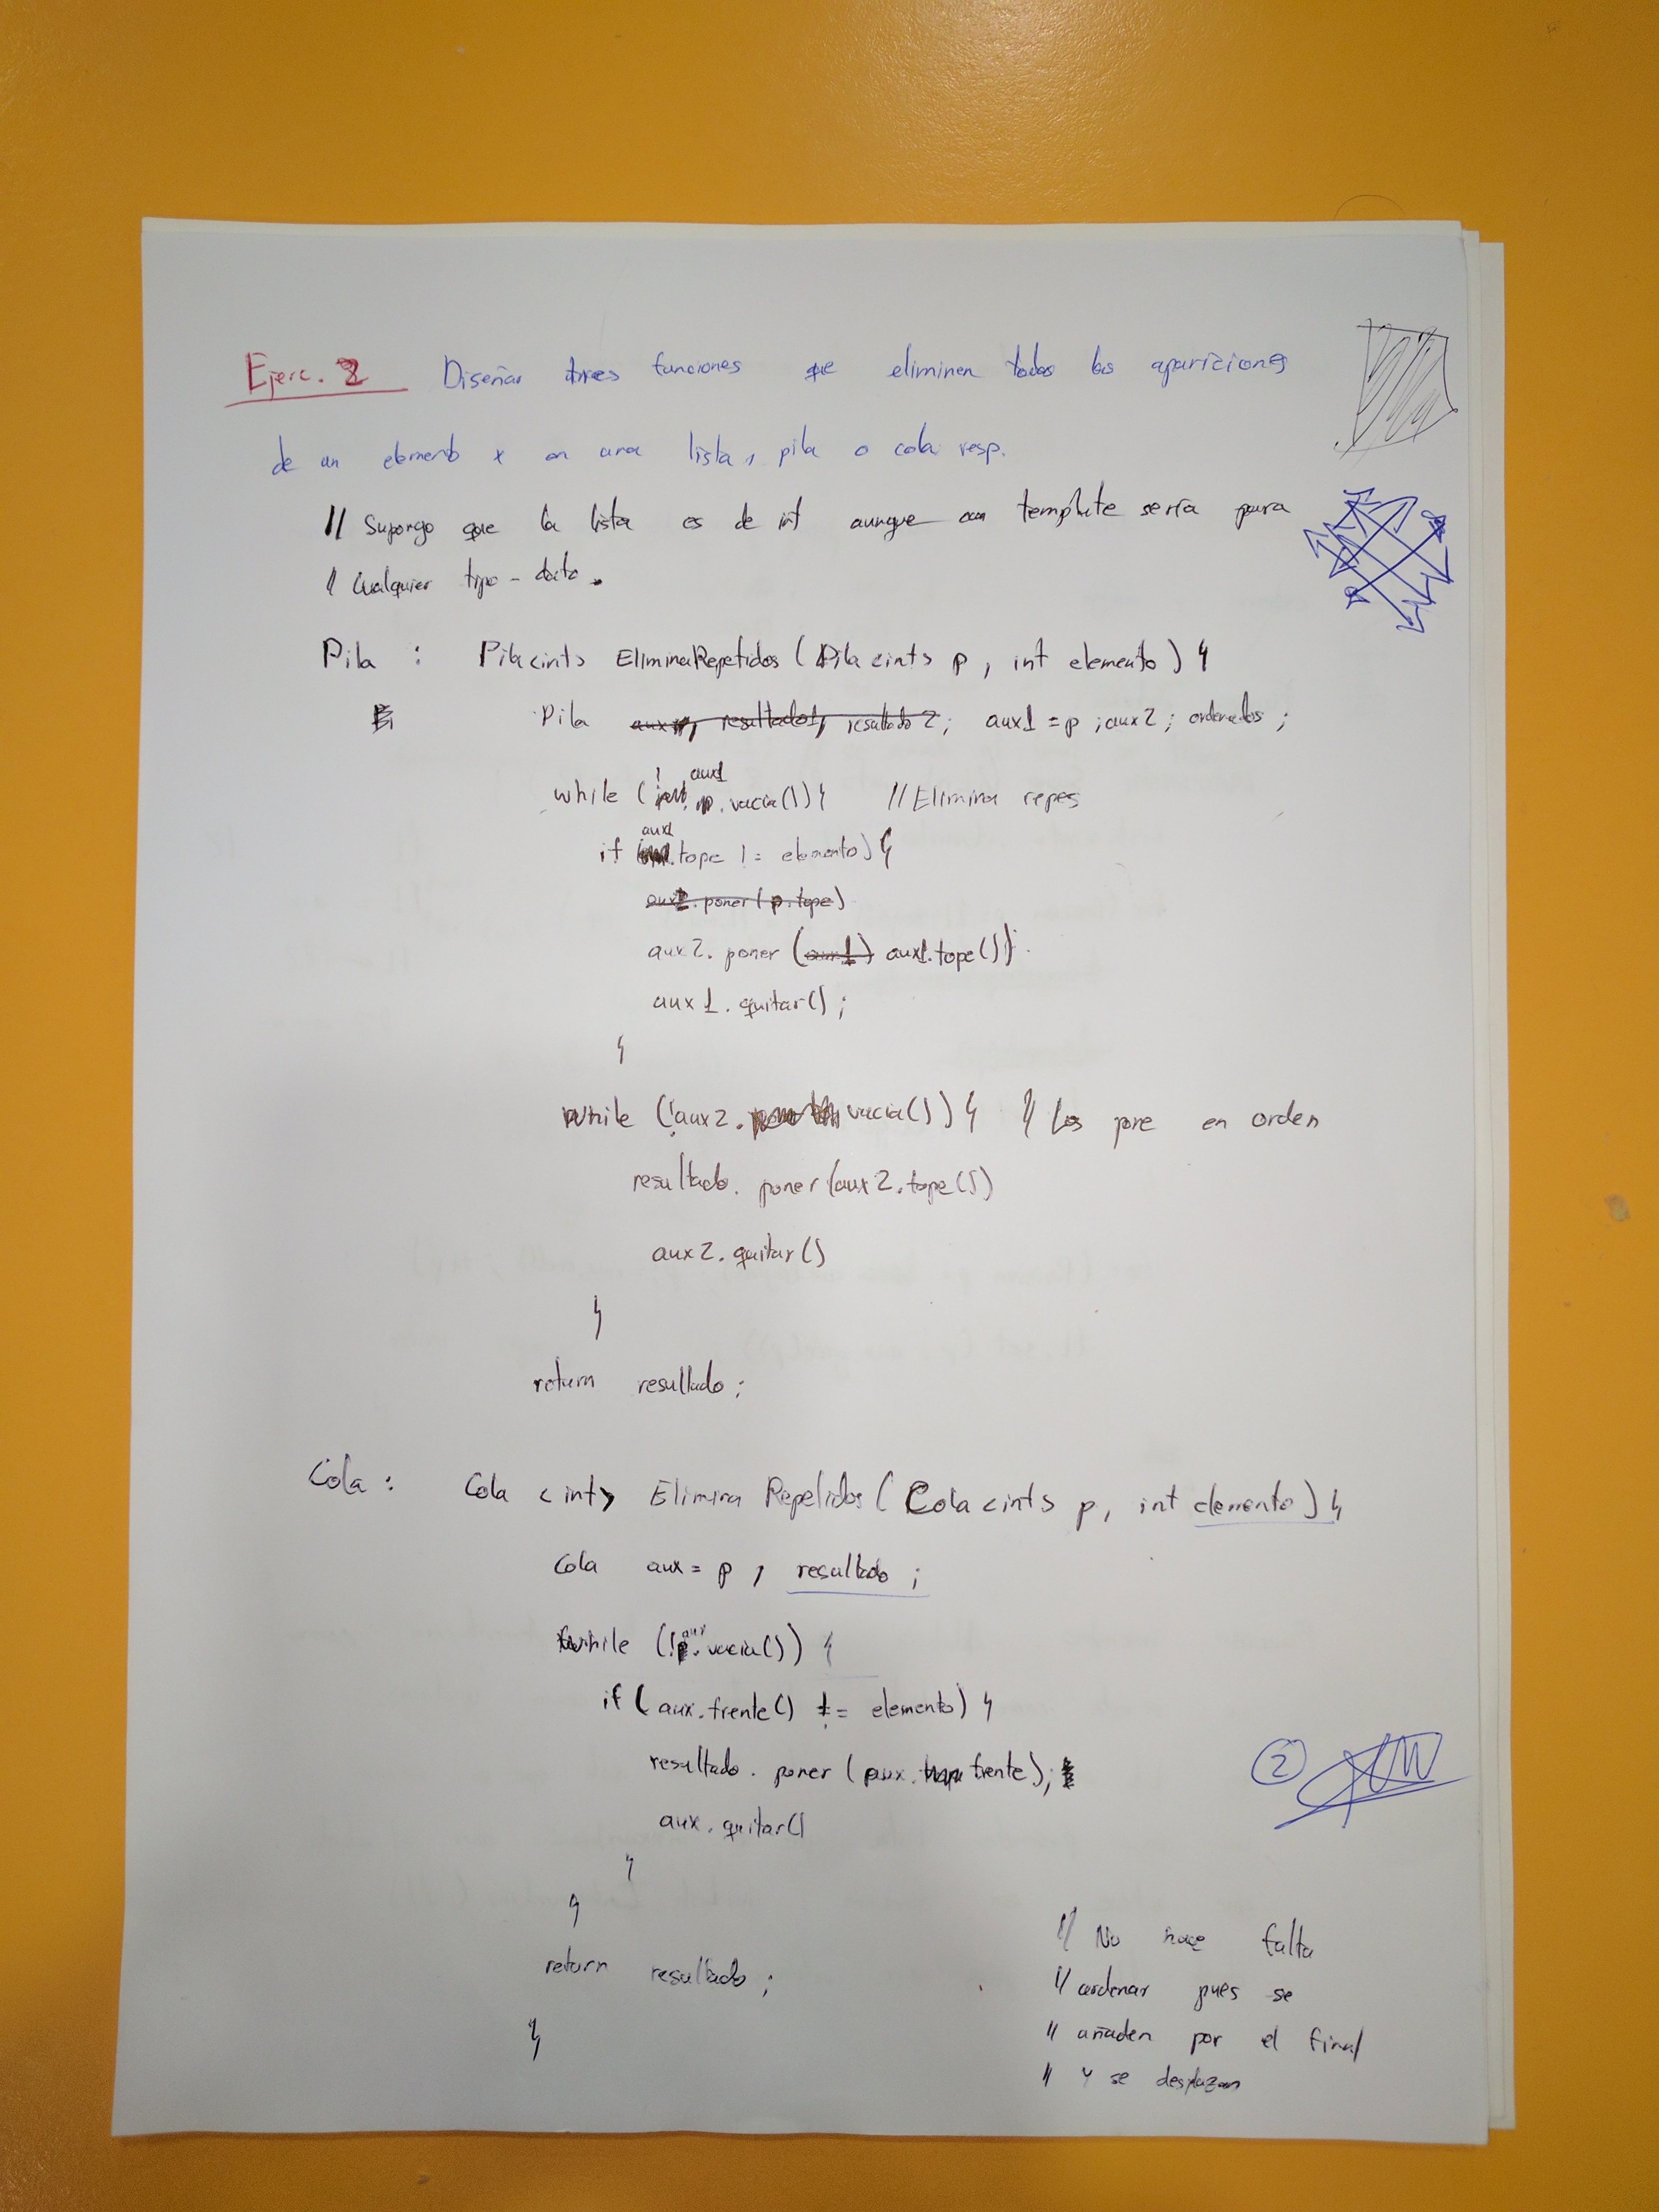 Ejerc. 2 Diseñar tres funciones que eliminen todas las apariciones
de un elemento x en una lista, pila o cola resp.
// Supongo que la lista es de int aunque con template sería para
// cualquier tipo-dato.
Pila : Pila<int> EliminaRepetidos (Pila<int> p, int elemento) {
Pila aux1, resultado1, resultado2; aux1 = p ; aux2 ; ordenados ;
while (! aux1 .vacia()) { // Elimina repes
if aux1 .tope != elemento) {
aux2.poner (p.tope)
aux2. poner (aux1) aux1.tope())
aux1. quitar();
}
while (!aux2. vacia()) { // Los pone en orden
resultado. poner (aux2.tope())
aux2. quitar()
}
return resultado ;
Cola : Cola <int> Elimina Repetidos (Cola<int> p, int elemento) {
Cola aux = p , resultado ;
while (! aux .vacia()) {
if (aux.frente() != elemento) {
resultado. poner (aux. frente);
aux. quitar()
}
}
return resultado ;
}
// No hace falta
// ordenar pues se
// añaden por el final
// y se desplazan
2